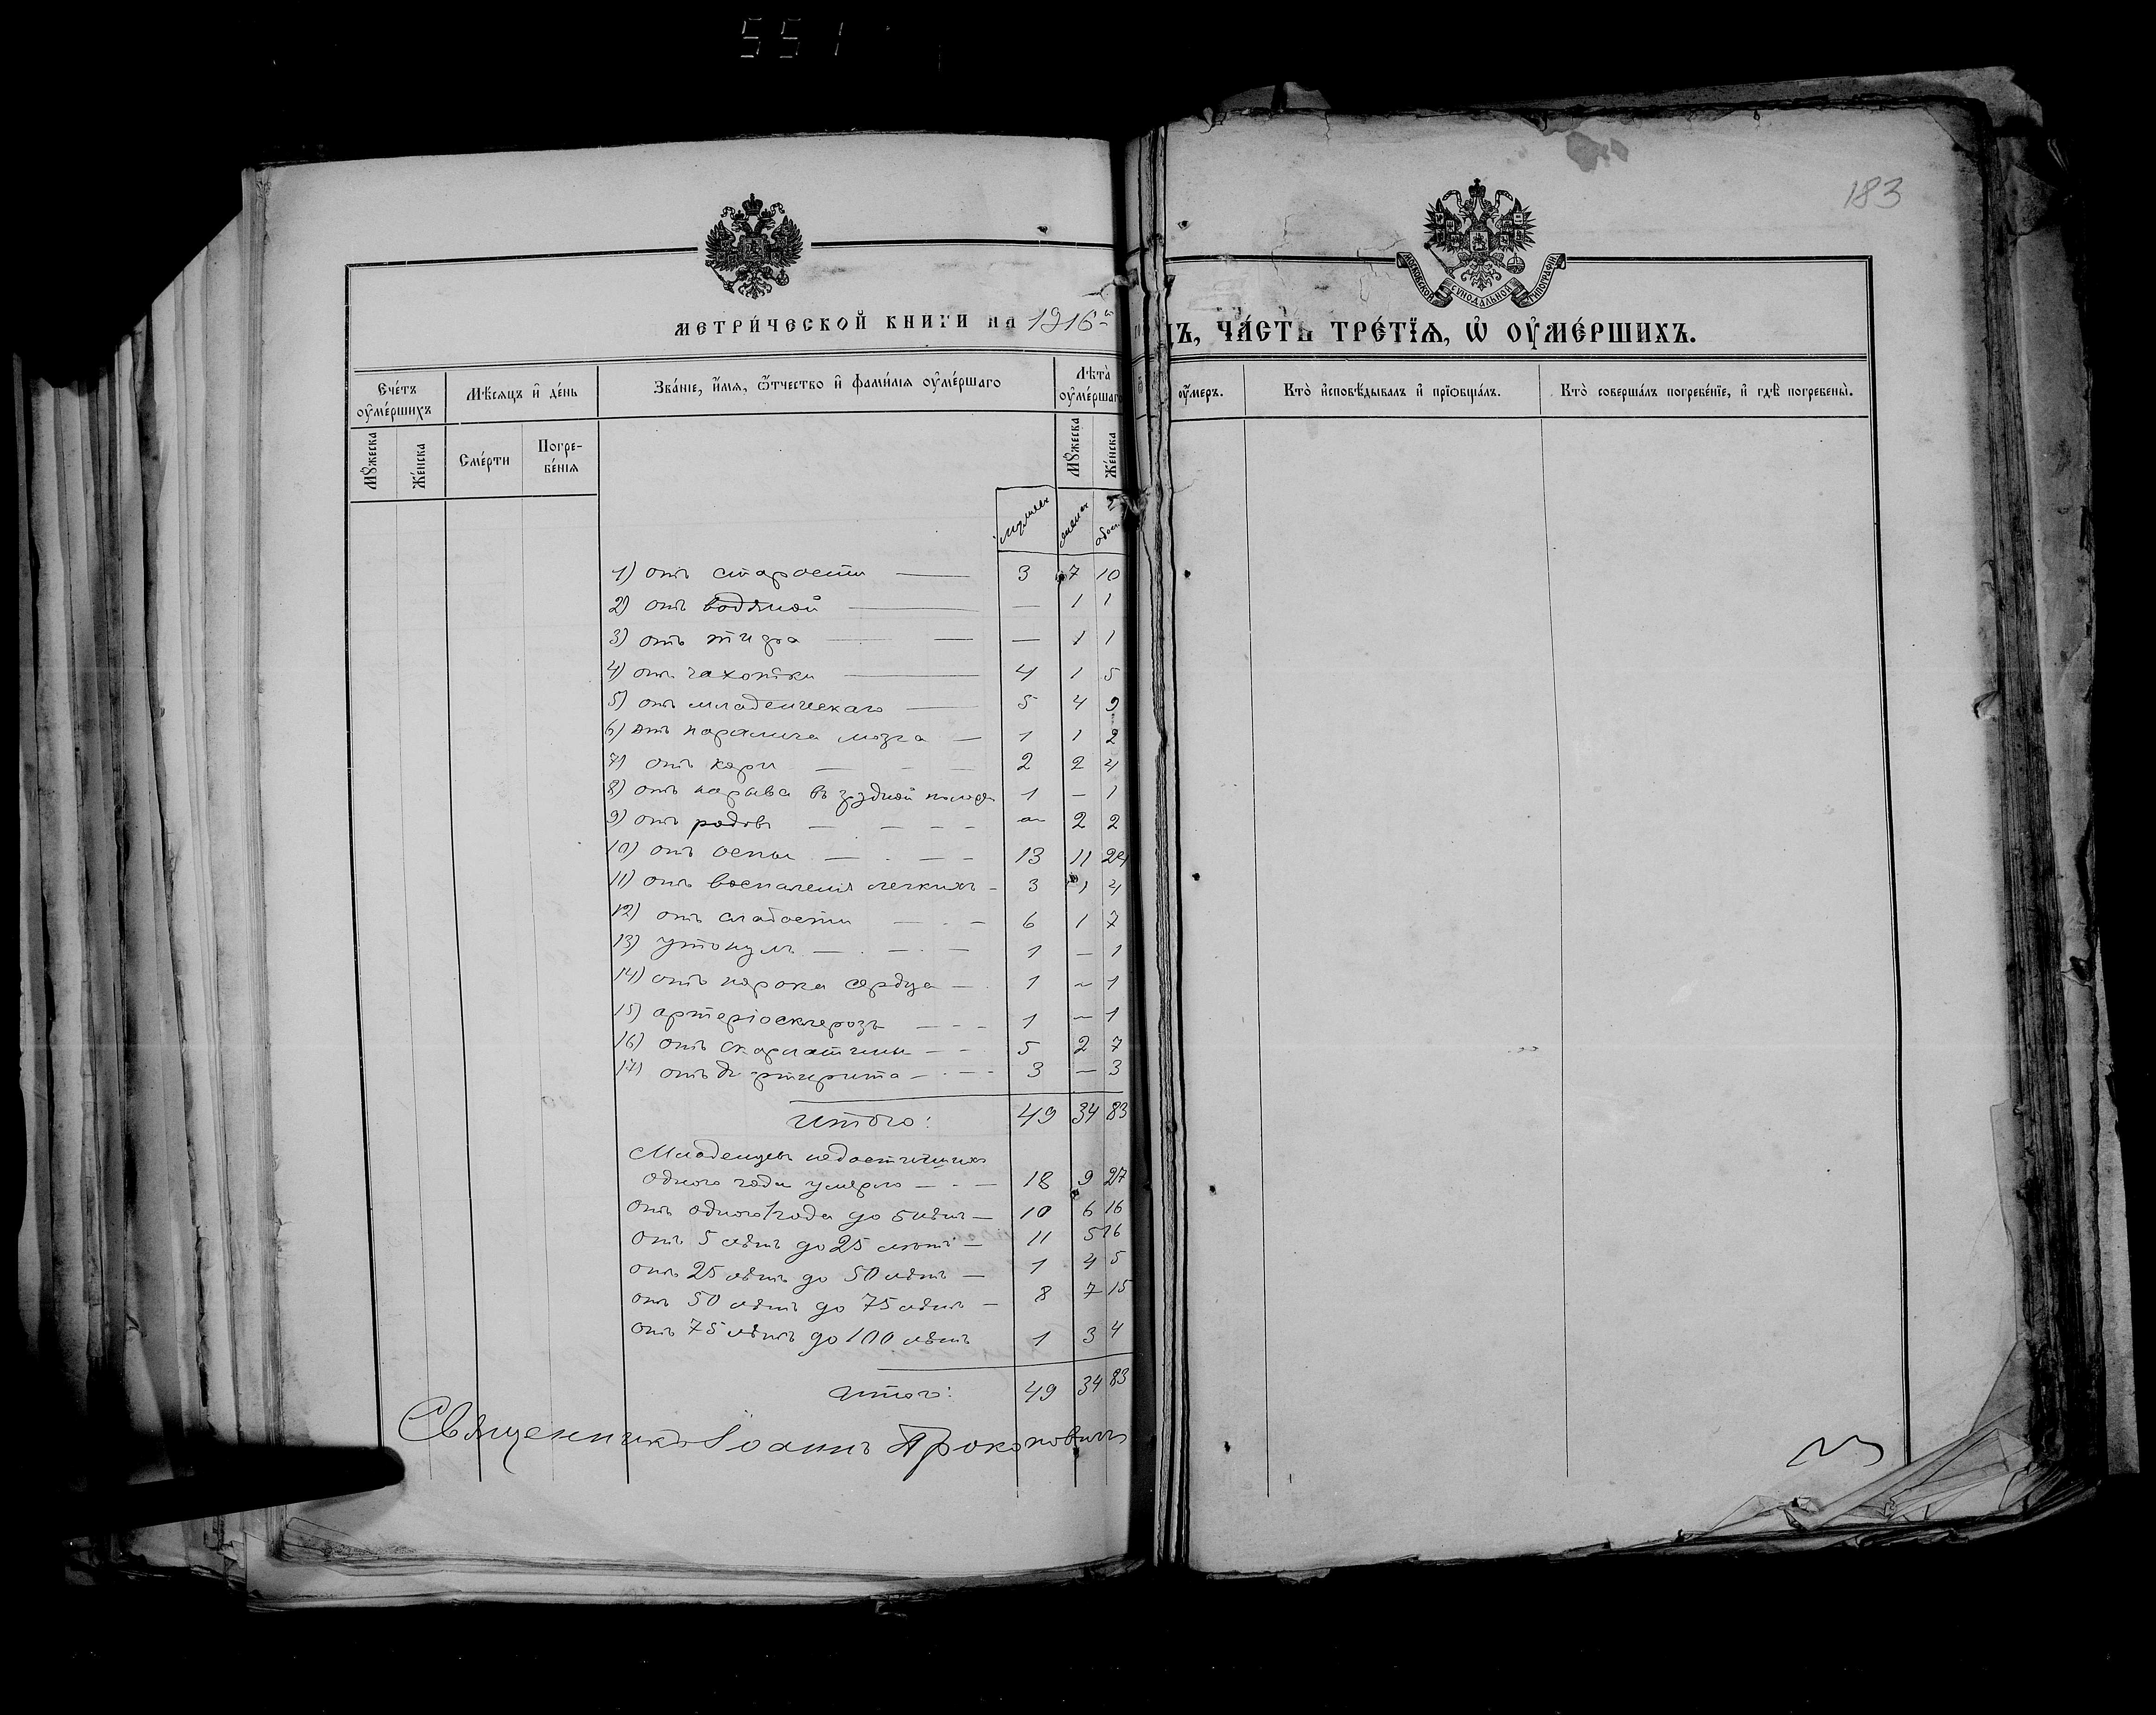 551
183
МОСКОВСКОЙ СѴНОДАЛЬНОЙ ТИПОГРАФІИ
МЕТРИ́ЧЕСКОЙ КНИГИ НА 1916й
ЧА́СТЬ ТРЕ́ТЇѦ, Ѽ ОУ҆МЕ́РШИХЪ.
Сче́тъ оу҆ме́ршихъ
Мѣ́сѧцъ и҆ де́нь
Зва́нїе, и҆́мѧ, ѻ҆́тчество и҆ фами́лїѧ оу҆ме́ршаго
Лѣ́та оу҆ме́ршаго
оу҆́меръ.
Кто̀ и҆сповѣ́дывалъ и҆ прїѡбща́лъ.
Кто̀ соверша́лъ погребе́нїе, и҆ гдѣ̀ погребены̀.
Мꙋ́жеска
Же́нска
Сме́рти
Погребе́нїѧ
Мꙋ́жеска
Же́нска
1) отъ старости — 3 7 10
2) отъ водяной — — 1 1
3) отъ тифа — — — 1 1
4) отъ чахотки — 4 1 5
5) отъ младенческаго — 5 4 9
6) отъ паралича мозга — 1 1 2
7) отъ кори — — — 2 2 4
8) отъ нарыва въ грудной 1 — 1
9) отъ родовъ — — — — 2 2
10) отъ оспы — . — — 13 11 24
11) отъ воспаленія легкихъ - 3 1 4
12) отъ слабости — - — 6 1 7
13) утонулъ — . — . — 1 — 1
14) отъ порока сердца — 1 ~ 1
15) артеріосклерозъ — - - 1 — 1
16) отъ скарлатины — - 5 2 7
17) отъ дифтерита — . — - 3 — 3
Итого: 49 34 83
Младенцевъ недостигшихъ
одного года умерло — - — 18 9 27
отъ одного года до 5 лѣтъ — 10 6 16
отъ 5 лѣтъ до 25 лѣтъ — 11 5 16
отъ 25 лѣтъ до 50 лѣтъ — 1 4 5
отъ 50 лѣтъ до 75 лѣтъ — 8 7 15
отъ 75 лѣтъ до 100 лѣтъ 1 3 4
Итого: 49 34 83
Священникъ Іоаннъ Прокоповичъ